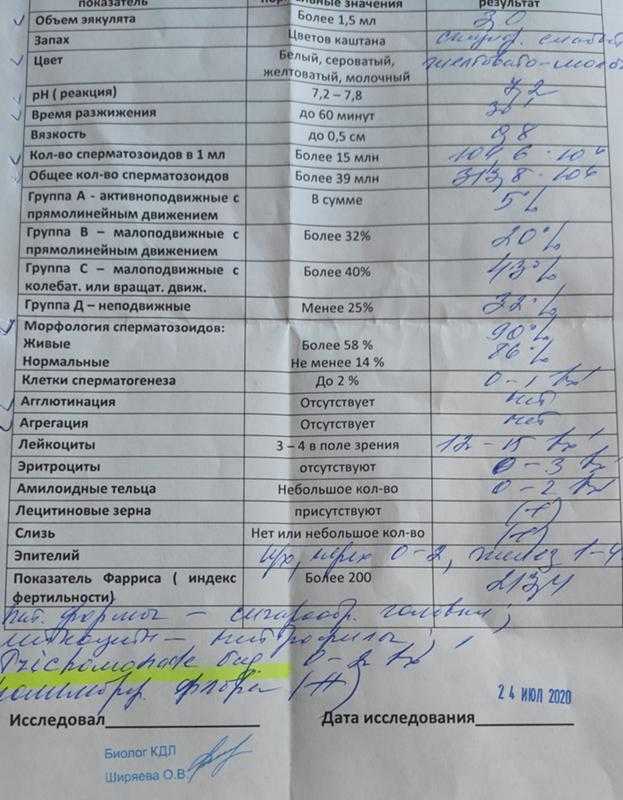 показатель нормальные значения результат
Объем эякулята Более 1,5 мл 3,0
Запах Цветов каштана
Цвет Белый, сероватый, желтовато-
желтоватый, молочный
pH ( реакция) 7,2 – 7,8 7,2
Время разжижения до 60 минут 30'
Вязкость до 0,5 см 0,8
Кол-во сперматозоидов в 1 мл Более 15 млн 104,6 · 10⁶
Общее кол-во сперматозоидов Более 39 млн 313,8 · 10⁶
Группа А - активноподвижные с В сумме 5%
прямолинейным движением
Группа В – малоподвижные с Более 32% 20%
прямолинейным движением
Группа С – малоподвижные с Более 40% 43%
колебат. или вращат. движ.
Группа Д – неподвижные Менее 25% 32%
Морфология сперматозоидов:
Живые Более 58 % 90%
Нормальные Не менее 14 % 86%
Клетки сперматогенеза До 2 % 0-1
Агглютинация Отсутствует нет
Агрегация Отсутствует нет
Лейкоциты 3 – 4 в поле зрения 12-15
Эритроциты отсутствуют 0-3
Амилоидные тельца Небольшое кол-во 0-2
Лецитиновые зерна присутствуют (+)
Слизь Нет или небольшое кол-во (+)
Эпителий 0-2,
Показатель Фарриса ( индекс Более 200 213,4
фертильности)
пат. формы – сигарообр. головки;
лейкоциты – нейтрофилы;
Trichomonas 0-2
флора (++)
24 ИЮЛ 2020
Исследовал Дата исследования
Биолог КДЛ
Ширяева О.В.